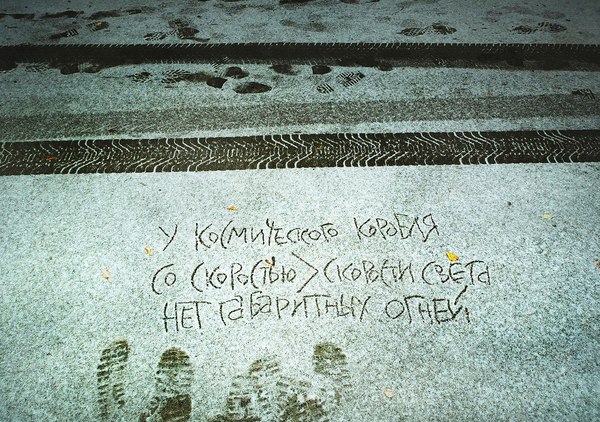 У КОСМИЧЕСКОГО КОРАБЛЯ
СО СКОРОСТЬЮ > СКОРОСТИ СВЕТА
НЕТ ГАБАРИТНЫХ ОГНЕЙ